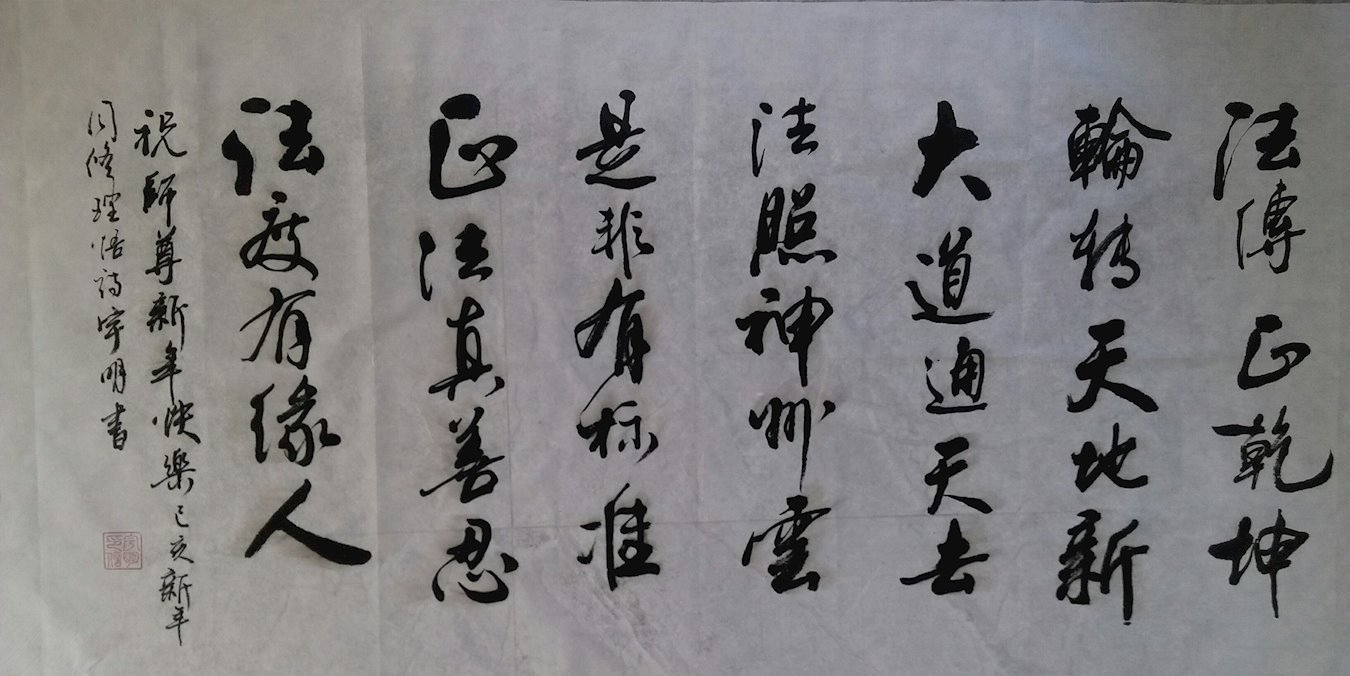 法傳正乾坤
輪转天地新
大道通天去
法照神州雲
是非有标准
正法真善忍
法度有缘人
祝師尊新年快樂己亥新年
同修理悟詩宇明書